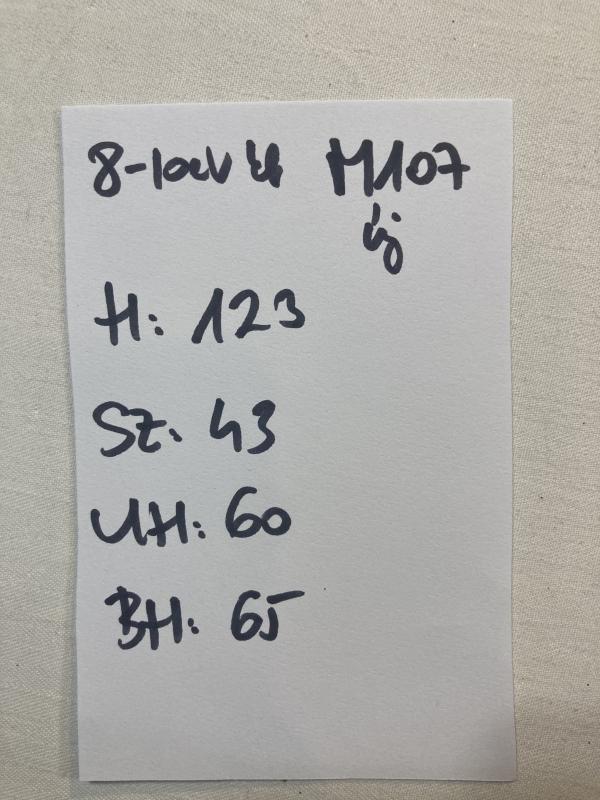 8-10év új M107
új
H: 123
Sz: 43
UH: 60
BH: 65